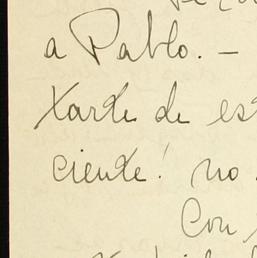 a Pablo. —
tarte de es
ciente! no
Con